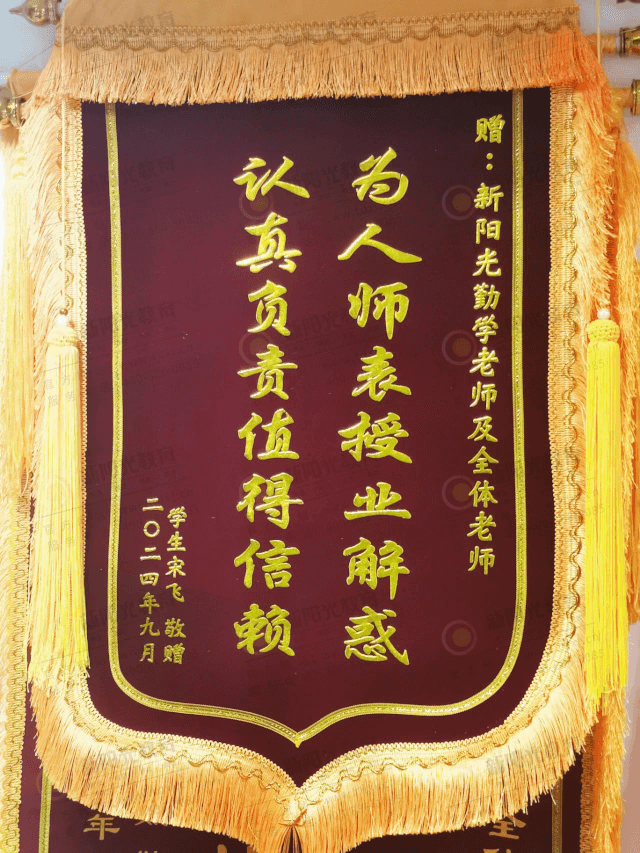 赠：新阳光勤学老师及全体老师
为人师表授业解惑
认真负责值得信赖
学生宋飞 敬赠
二〇二四年九月
年